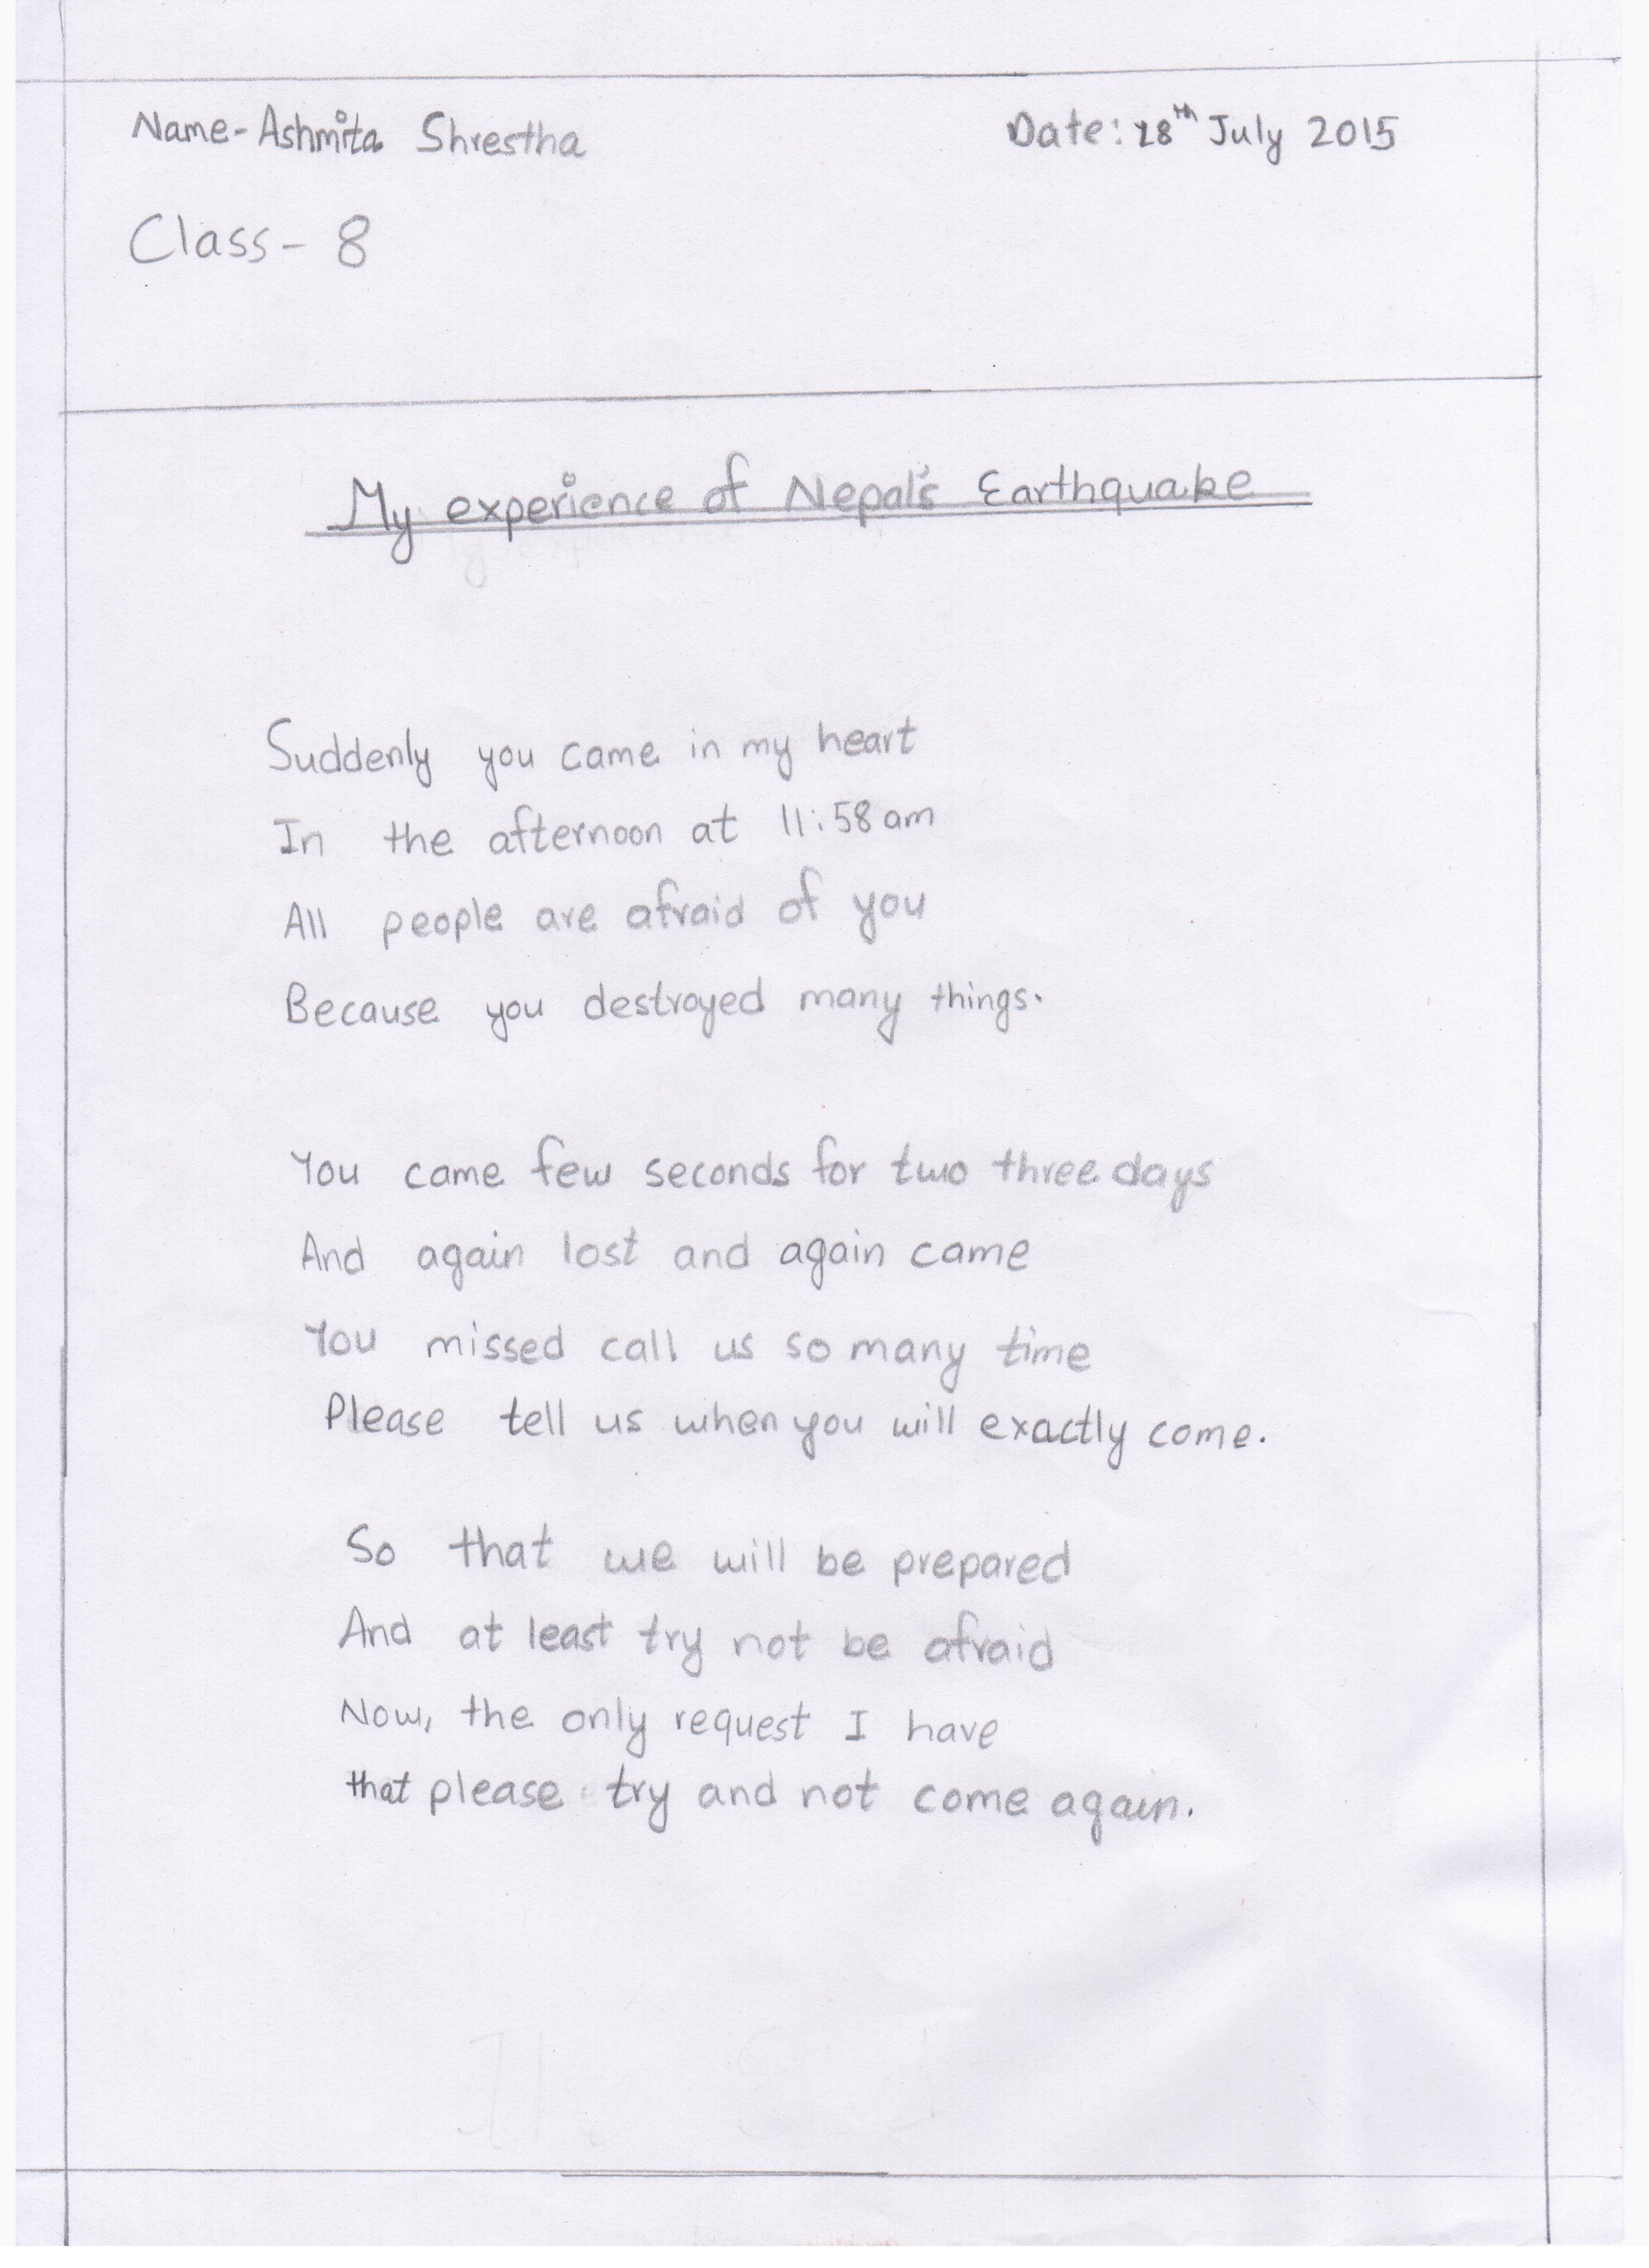 Name-Ashmita Shrestha
Date: 28th July 2015
Class- 8
My experience of Nepal's Earthquake
Suddenly you came in my heart
In the afternoon at 11:58am
All people are afraid of you
Because you destroyed many things.
You came few seconds for two three days
And again lost and again came
You missed call us so many time
Please tell us when you will exactly come.
So that we will be prepared
And at least try not be afraid
Now, the only request I have
that please try and not come again.